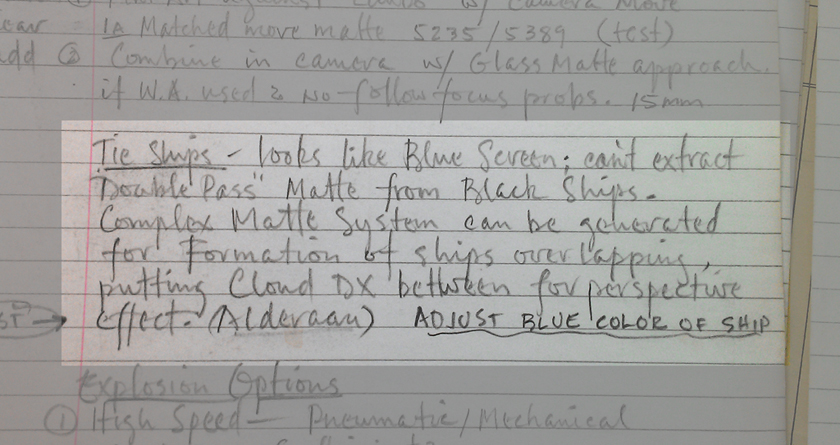 w/ Camera Move
1A Matched move matte 5235/5389 (test)
add ② Combine in camera w/ Glass Matte approach.
if W.A. used & No-follow focus probs. 15mm
Tie Ships - looks like Blue Screen; can't extract
"Double Pass" Matte from Black Ships.
Complex Matte System can be generated
for Formation of ships overlapping,
putting Cloud DX between for perspective
effect. (Alderaan) ADJUST BLUE COLOR OF SHIP
Explosion Options
① High Speed — Pneumatic/Mechanical